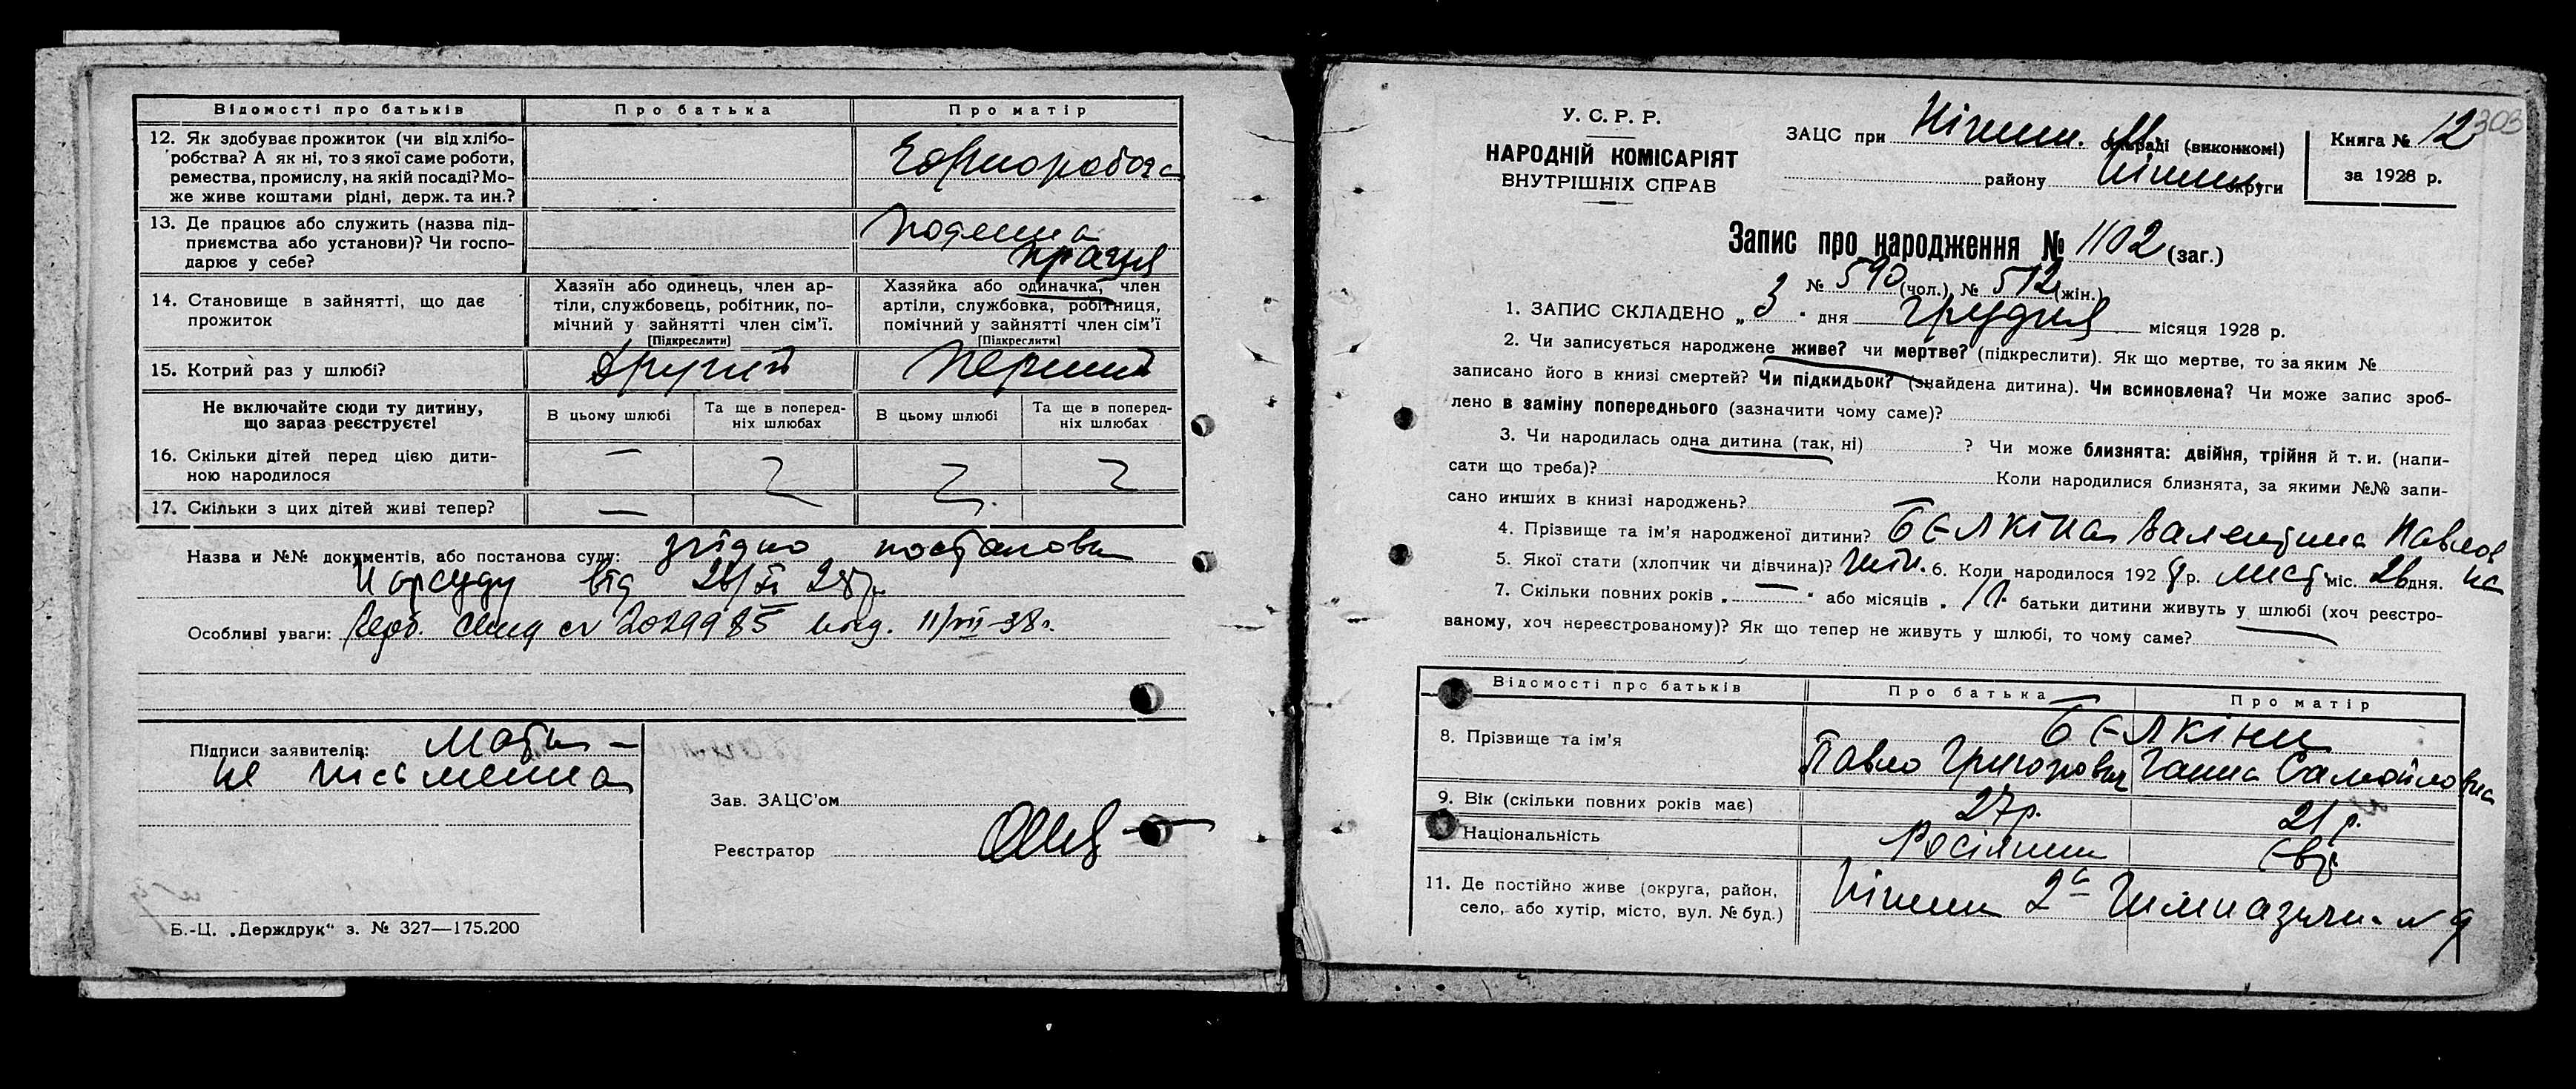 Відомості про батьків
Про батька
Про матір
12. Як здобуває прожиток (чи від хлібо-
робства? А як ні, то з якої саме роботи,
ремества, промислу, на якій посаді? Мо-
же живе коштами рідні, держ. та ин.?
Чорнороборча
13. Де працює або служить (назва під-
приємства або установи)? Чи госпо-
дарює у себе?
Поденна
праця
14. Становище в зайнятті, що дає
прожиток
Хазяїн або одинець, член ар-
тіли, службовець, робітник, по-
мічний у зайнятті член сім'ї.
[Підкреслити]
Хазяйка або одиначка, член
артіли, службовка, робітниця,
помічний у зайнятті член сім'ї
[Підкреслити]
15. Котрий раз у шлюбі?
Другий
Перший
Не включайте сюди ту дитину,
що зараз реєструєте!
В цьому шлюбі
Та ще в поперед-
ніх шлюбах
В цьому шлюбі
Та ще в поперед-
ніх шлюбах
16. Скільки дітей перед цією дити-
ною народилося
17. Скільки з цих дітей живі тепер?
Назва и №№ документів, або постанова суду: згідно постанови
Нарсуду від 26/XI 28р.
Особливі уваги: 2029985 11/VII-38г.
Підписи заявителів: Мати -
не письменна
Зав. ЗАЦС'ом
Реєстратор
Б.-Ц. „Держдрук“ з. № 327—175.200
У. С. Р. Р.
НАРОДНІЙ КОМІСАРІЯТ
ВНУТРІШНІХ СПРАВ
ЗАЦС при Ніжин. М. (виконкомі)
району Ніжин. округи
Книга № 12
за 1928 р.
303
Запис про народження № 1102 (заг.)
№ 590 (чол.) № 512 (жін.)
1. ЗАПИС СКЛАДЕНО „3“ дня Грудня місяця 1928 р.
2. Чи записується народжене живе? чи мертве? (підкреслити). Як що мертве, то за яким №
записано його в книзі смертей? Чи підкидьок? (знайдена дитина). Чи всиновлена? Чи може запис зроб-
лено в заміну попереднього (зазначити чому саме)?
3. Чи народилась одна дитина (так, ні) ? Чи може близнята: двійня, трійня й т. и. (напи-
сати що треба)? Коли народилися близнята, за якими №№ запи-
сано инших в книзі народжень?
4. Прізвище та ім'я народженої дитини? Бєлкіна Валентина Павлов
на
5. Якої стати (хлопчик чи дівчина)? жін. 6. Коли народилося 1928 р. лист. міс. 26 дня.
7. Скільки повних років „—“ або місяців „11“ батьки дитини живуть у шлюбі (хоч реєстро-
ваному, хоч нереєстрованому)? Як що тепер не живуть у шлюбі, то чому саме?
Відомості про батьків
Про батька
Про матір
8. Прізвище та ім'я
Бєлкіни
Павло Григорович
Ганна Самойловна
9. Вік (скільки повних років має)
27 р.
21 р.
Національність
Росіянин
Євр.
11. Де постійно живе (округа, район,
село, або хутір, місто, вул. № буд.)
Ніжин 2а Гимназична № 9